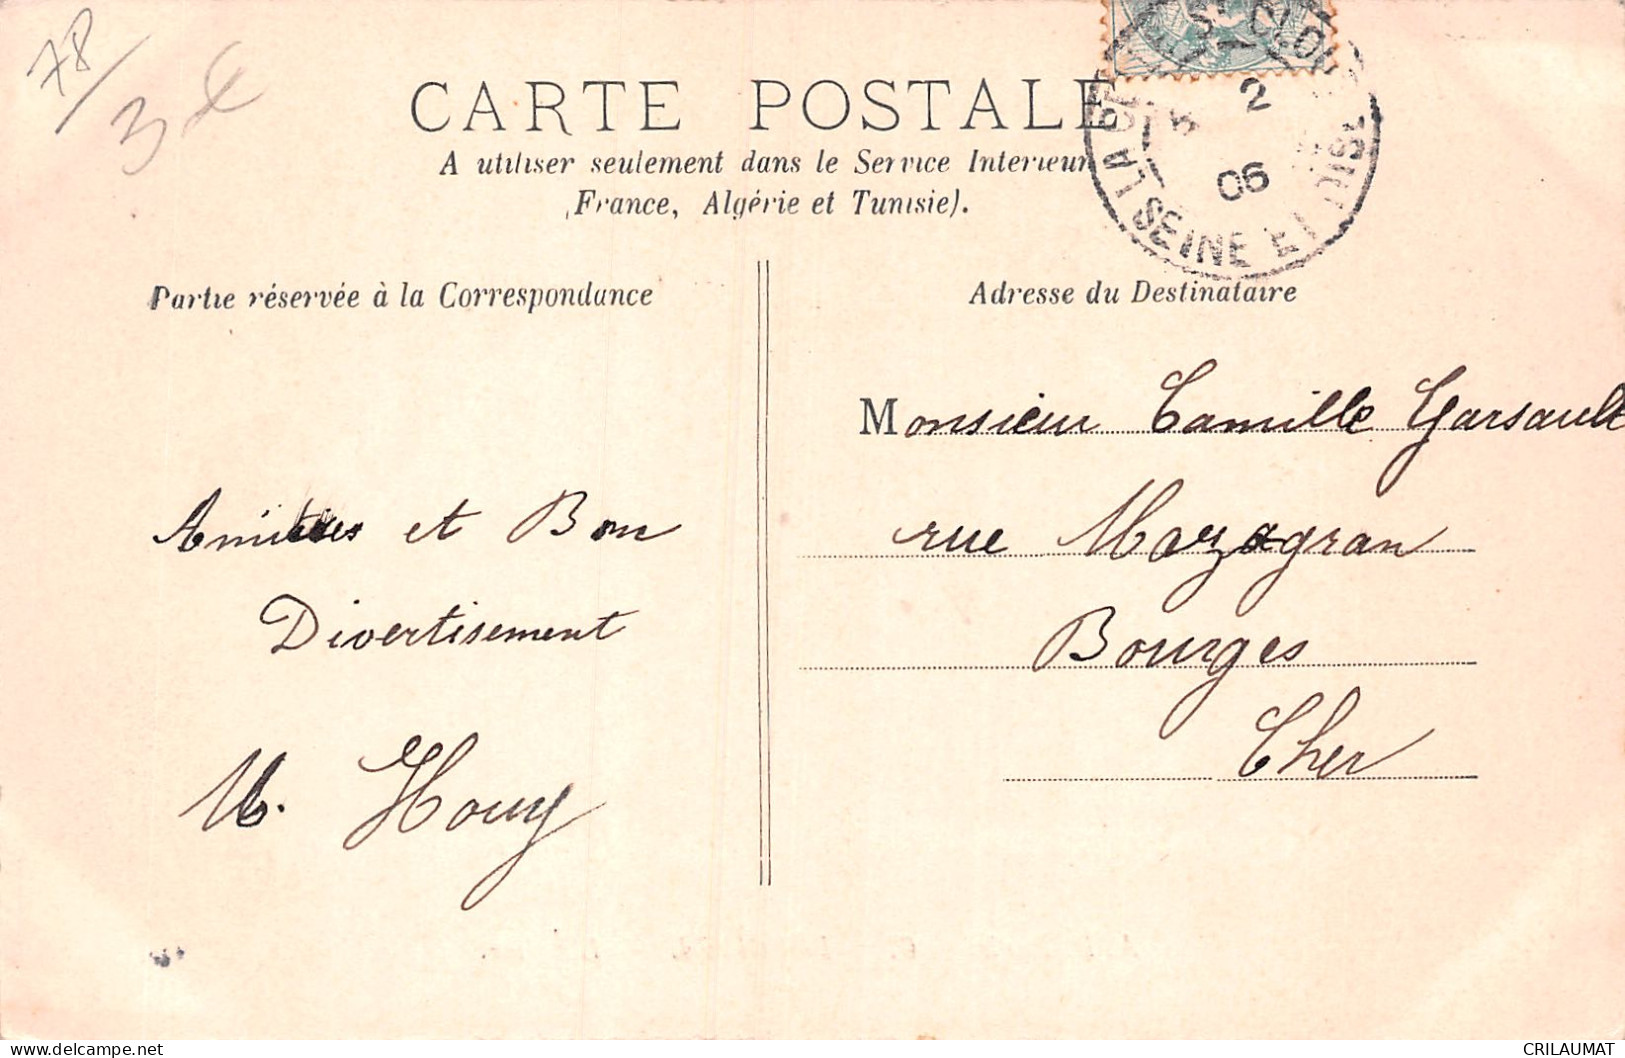 78/
3€
CARTE POSTALE
A utiliser seulement dans le Service Interieur
France, Algérie et Tunisie).
LA CE ST CLOUD
2
06
SEINE ET OISE
Partie réservée à la Correspondance
Adresse du Destinataire
Monsieur Camille Garsault
rue Mazagran
Bourges
Cher
Amitiées et Bon
Divertisement
M. Houy
CRILAUMAT